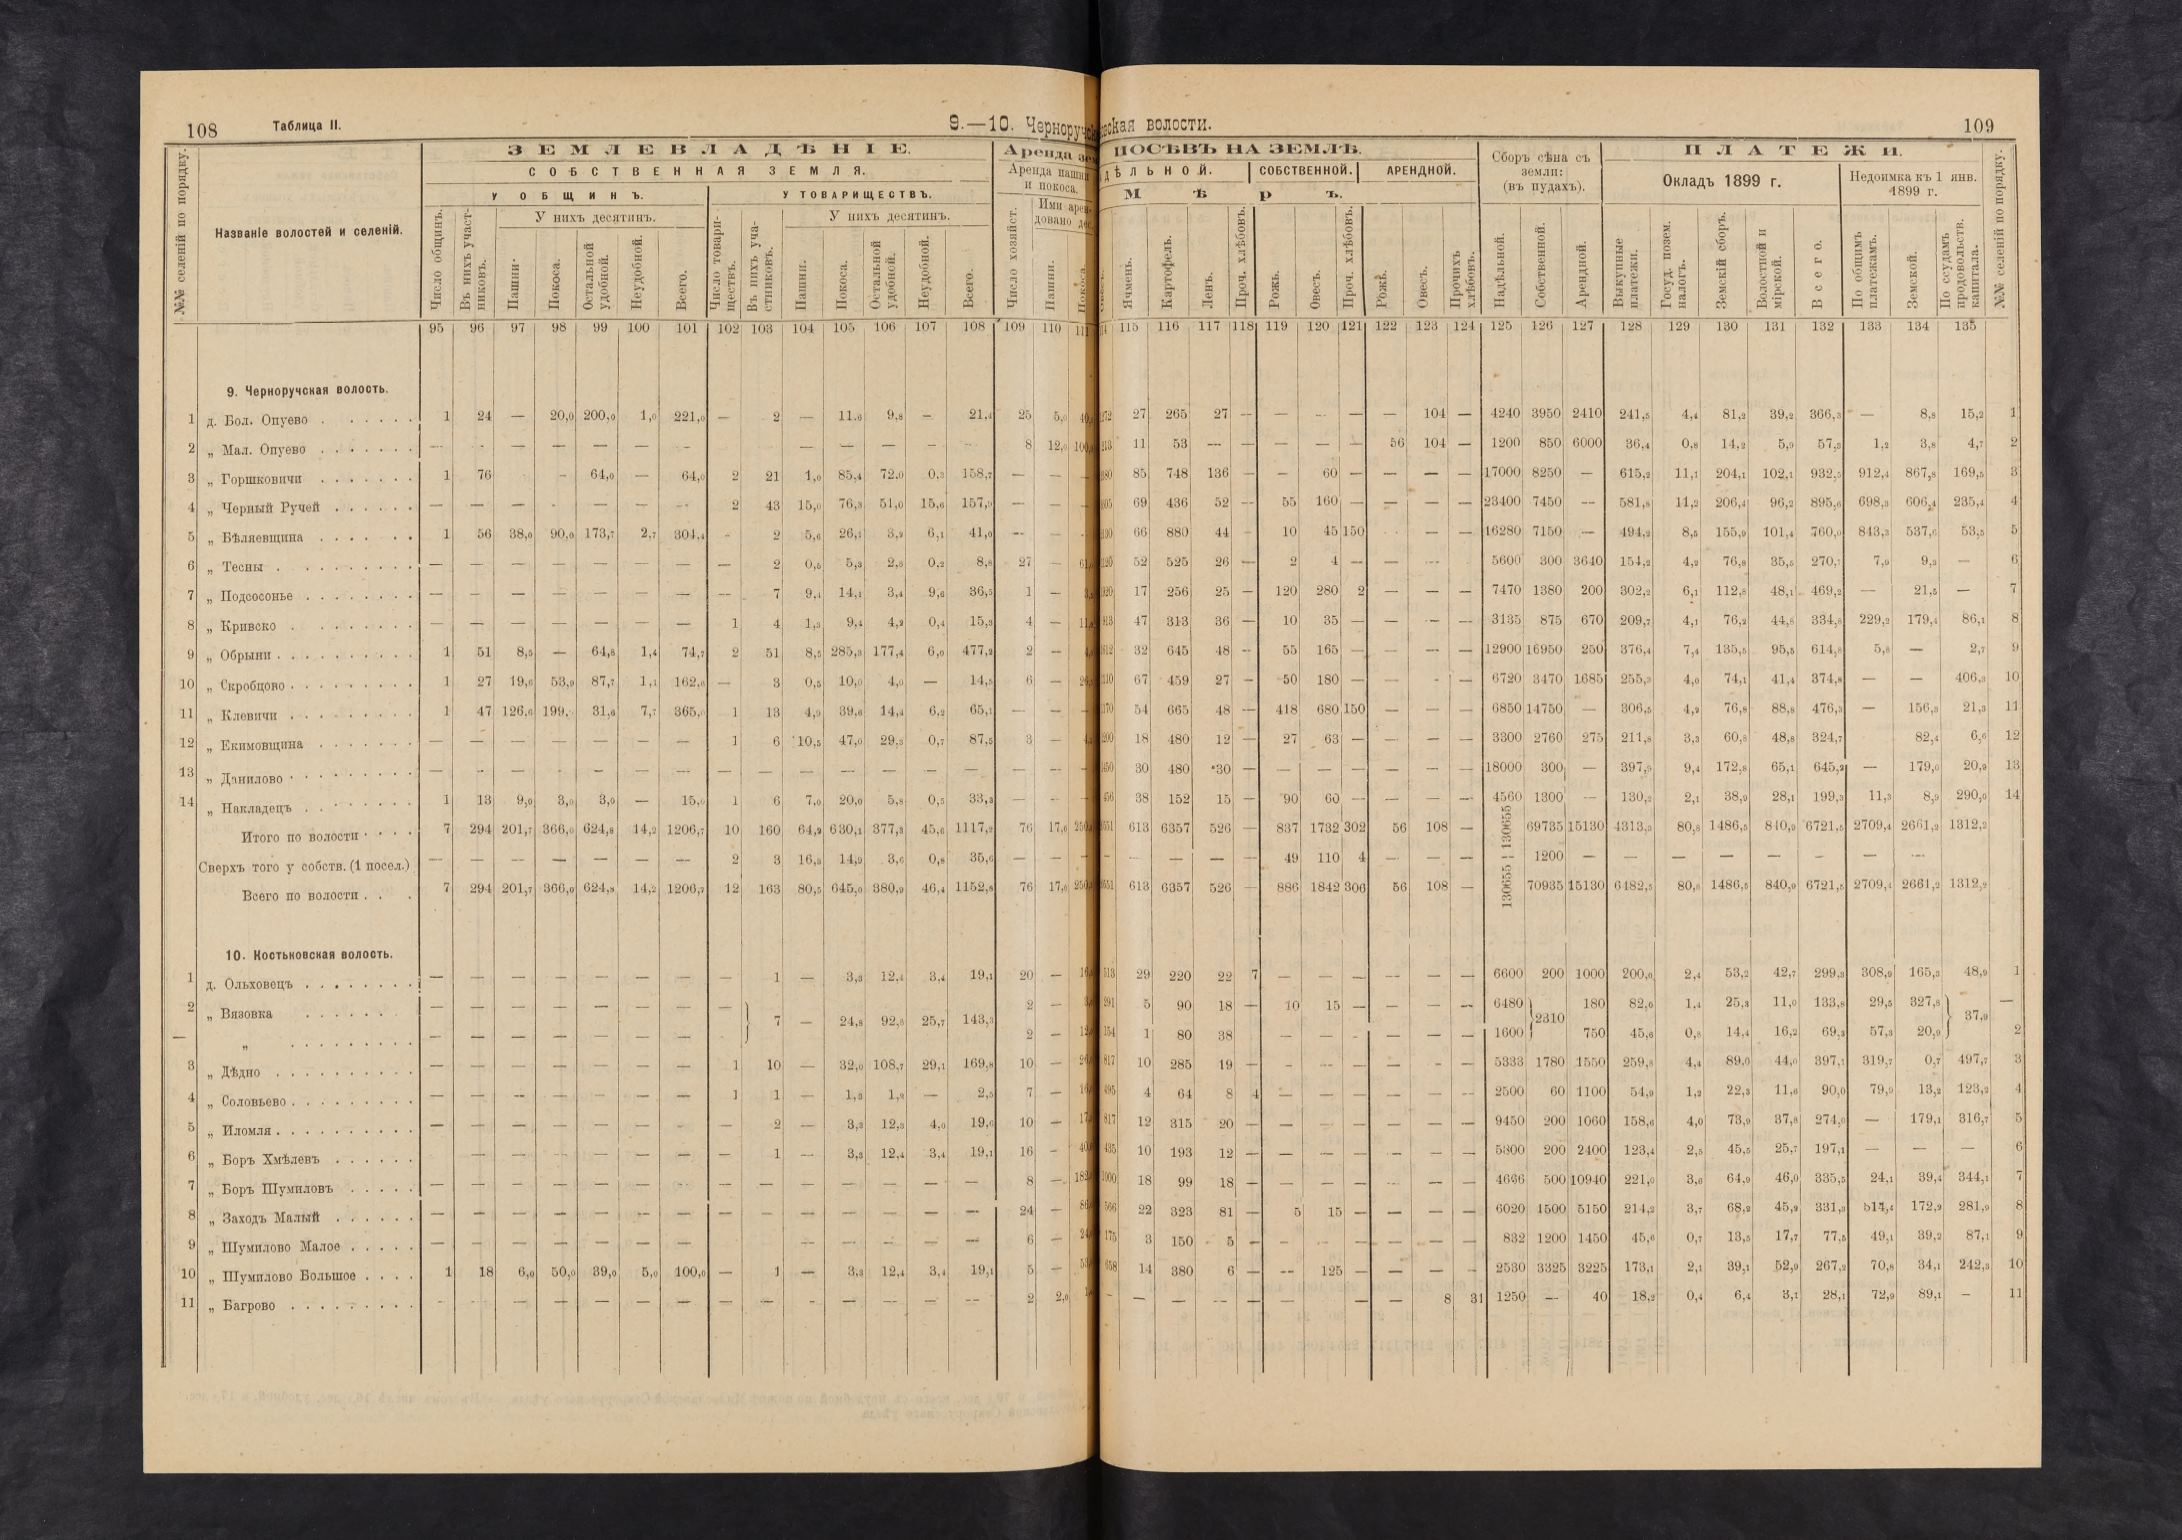 108 Таблица II. 9.—10. Черноручск
З Е М Л Е В Л А Д Ѣ Н I Е. Аренда
С О Б С Т В Е Н Н А Я З Е М Л Я. Аренда пашни и покоса.
У ОБЩИНЪ. У ТОВАРИЩЕСТВЪ.
У нихъ десятинъ. У нихъ десятинъ. Ими арен-
довано дес.
№№ селеній по порядку. Названіе волостей и селеній. Число общинъ. Въ нихъ участ-никовъ. Пашни. Покоса. Остальной удобной. Неудобной. Всего. Число товари-ществъ. Въ нихъ уча-стниковъ. Пашни. Покоса. Остальной удобной. Неудобной. Всего. Число хозяйст. Пашни. Покоса.
95 96 97 98 99 100 101 102 103 104 105 106 107 108 109 110 111
9. Черноручская волость.
1 д. Бол. Опуево 1 24 — 20,0 200,0 1,0 221,0 — 2 — 11,6 9,8 — 21,4 25 5,0
2 „ Мал. Опуево — — — — — — — — — — — 8 12,0
3 „ Горшковичи 1 76 - 64,0 — 64,0 2 21 1,0 85,4 72,0 0,3 158,7 — —
4 „ Черный Ручей — — — - — — — 2 43 15,0 76,3 51,0 15,6 157,9 — —
5 „ Бѣляевщина 1 56 38,0 90,0 173,7 2,7 304,4 - 2 5,6 26,1 3,2 6,1 41,0 — —
6 „ Тесны — — — — — — — — 2 0,5 5,3 2,8 0,2 8,8 27 —
7 „ Подсосонье — — — — — — — — 7 9,4 14,1 3,4 9,6 36,5 1 —
8 „ Кривско — — — — — — — 1 4 1,3 9,4 4,2 0,4 15,3 4 —
9 „ Обрыни 1 51 8,5 — 64,8 1,4 74,7 2 51 8,5 285,3 177,4 6,0 477,2 2 —
10 „ Скробцово 1 27 19,6 53,9 87,7 1,1 162,6 — 3 0,5 10,0 4,0 — 14,5 6 —
11 „ Клевичи 1 47 126,6 199, 31,6 7,7 365,0 1 13 4,9 39,6 14,4 6,2 65,1 — —
12 „ Екимовщина — — — — — — — 1 6 10,5 47,0 29,3 0,7 87,5 3 —
13 „ Данилово — — — — — — — — — — — — — — — —
14 „ Накладецъ 1 13 9,0 3,0 3,0 — 15,0 1 6 7,0 20,0 5,8 0,5 33,3 — —
Итого по волости 7 294 201,7 366,9 624,8 14,2 1206,7 10 160 64,2 630,1 377,3 45,6 1117,2 76 17,0
Сверхъ того у собств. (1 посел.) — — — — — — — 2 3 16,3 14,9 3,6 0,8 35,6 — —
Всего по волости 7 294 201,7 366,9 624,8 14,2 1206,7 12 163 80,5 645,0 380,9 46,4 1152,8 76 17,0
10. Костьковская волость.
1 д. Ольховецъ — — — — — — — — 1 — 3,3 12,4 3,4 19,1 20 —
2 „ Вязовка — — — — — — — 7 — 24,8 92,8 25,7 143,3 2 —
— „ — — — — — — — 2 —
3 „ Дѣдно — — — — — — — 1 10 — 32,0 108,7 29,1 169,8 10 —
4 „ Соловьево — — — — — — — 1 1 — 1,3 1,2 — 2,5 7 —
5 „ Иломля — — — — — — — — 2 — 3,3 12,3 4,0 19,6 10 —
6 „ Боръ Хмѣлевъ — — — — — — — 1 — 3,3 12,4 3,4 19,1 16 -
7 „ Боръ Шумиловъ — — — — — — — — — — — — — — 8 —
8 „ Заходъ Малый — — — — — — — — — — — — — — 24 —
9 „ Шумилово Малое — — — — — — — — — — — — — 6 —
10 „ Шумилово Большое 1 18 6,0 50,0 39,0 5,0 100,0 — 1 — 3,3 12,4 3,4 19,1 5 —
11 „ Багрово - — — — — — — — — — - — — — 2 2,0
вская волости. 109
ПОСѢВЪ НА ЗЕМЛѢ. Сборъ сѣна съ земли: (въ пудахъ). П Л А Т Е Ж И.
ДѢЛЬНОЙ. СОБСТВЕННОЙ. АРЕНДНОЙ. Окладъ 1899 г. Недоимка къ 1 янв. 1899 г.
М Ѣ Р Ъ.
Ячмень. Картофель. Ленъ. Проч. хлѣбовъ. Рожь. Овесъ. Проч. хлѣбовъ. Рожь. Овесъ. Прочихъ хлѣбовъ. Надѣльной. Собственной. Арендной. Выкупные платежи. Госуд. позем. налогъ. Земскій сборъ. Волостной и мірской. Всего. По общимъ платежамъ. Земской. По ссудамъ продовольств. капитала. №№ селеній по порядку.
115 116 117 118 119 120 121 122 123 124 125 126 127 128 129 130 131 132 133 134 135
27 265 27 — — — — — 104 — 4240 3950 2410 241,5 4,4 81,2 39,2 366,3 — 8,8 15,2 1
11 53 — — — — — 56 104 — 1200 850 6000 36,4 0,8 14,2 5,9 57,3 1,2 3,8 4,7 2
85 748 136 — — 60 — — — — 17000 8250 — 615,2 11,1 204,1 102,1 932,5 912,4 867,8 169,5 3
69 436 52 — 55 160 — — — — 23400 7450 — 581,8 11,2 206,4 96,2 895,6 698,3 606,4 235,4 4
66 880 44 — 10 45 150 - — — 16280 7150 — 494,2 8,5 155,9 101,4 760,0 843,3 537,6 53,5 5
52 525 26 — 2 4 — — — - 5600 300 3640 154,2 4,2 76,8 35,5 270,7 7,9 9,3 — 6
17 256 25 — 120 280 2 — — — 7470 1380 200 302,2 6,1 112,8 48,1 469,2 — 21,5 — 7
47 313 36 — 10 35 — — — — 3135 875 670 209,7 4,1 76,2 44,8 334,8 229,2 179,4 86,1 8
32 645 48 — 55 165 — — — — 12900 16950 250 376,4 7,4 135,5 95,5 614,8 5,8 — 2,7 9
67 459 27 — 50 180 — — - — 6720 3470 1685 255,3 4,0 74,1 41,4 374,8 — — 406,3 10
54 665 48 — 418 680 150 — — — 6850 14750 — 306,5 4,2 76,8 88,8 476,3 — 156,3 21,3 11
18 480 12 — 27 63 — — — — 3300 2760 275 211,8 3,3 60,8 48,8 324,7 82,4 6,6 12
30 480 30 — — — — — — — 18000 300 — 397,9 9,4 172,8 65,1 645,2 — 179,0 20,9 13
38 152 15 — 90 60 — — — — 4560 1300 — 130,2 2,1 38,9 28,1 199,3 11,3 8,9 290,0 14
613 6357 526 — 837 1732 302 56 108 — 130655 69735 15130 4313,3 80,8 1486,5 840,9 6721,5 2709,4 2661,2 1312,2
— — — — 49 110 4 — — — — 1200 — — — — — — — —
613 6357 526 — 886 1842 306 56 108 — 130655 70935 15130 6482,5 80,8 1486,5 840,9 6721,5 2709,4 2661,2 1312,2
29 220 22 7 — — — — — — 6600 200 1000 200,0 2,4 53,2 42,7 299,3 308,9 165,3 48,9 1
5 90 18 — 10 15 — — — — 6480 2310 180 82,0 1,4 25,3 11,0 133,8 29,5 327,8 37,9 —
1 80 38 — — — — — — 1600 750 45,6 0,8 14,4 16,2 69,3 57,3 20,9 2
10 285 19 — - — — — - — 5333 1780 1550 259,8 4,4 89,0 44,0 397,1 319,7 0,7 497,7 3
4 64 8 4 — — — — — — 2500 60 1100 54,9 1,2 22,3 11,6 90,0 79,9 13,2 123,2 4
12 315 20 — — — — — — — 9450 200 1060 158,6 4,0 73,9 37,8 274,0 — 179,1 316,7 5
10 193 12 — — — — — — — 5300 200 2400 123,4 2,5 45,5 25,7 197,1 — — — 6
18 99 18 — — — — — — — 4666 500 10940 221,0 3,6 64,9 46,0 335,5 24,1 39,4 344,1 7
22 323 81 — 5 15 — — — — 6020 1500 5150 214,2 3,7 68,2 45,2 331,3 514,4 172,9 281,9 8
3 150 5 — - — — — — — 832 1200 1450 45,6 0,7 13,5 17,7 77,5 49,1 39,2 87,1 9
14 380 6 — — 125 — — — - 2530 3325 3225 173,1 2,1 39,1 52,9 267,2 70,8 34,1 242,3 10
— — — — — — — 8 31 1250 — 40 18,2 0,4 6,4 3,1 28,1 72,9 89,1 — 11